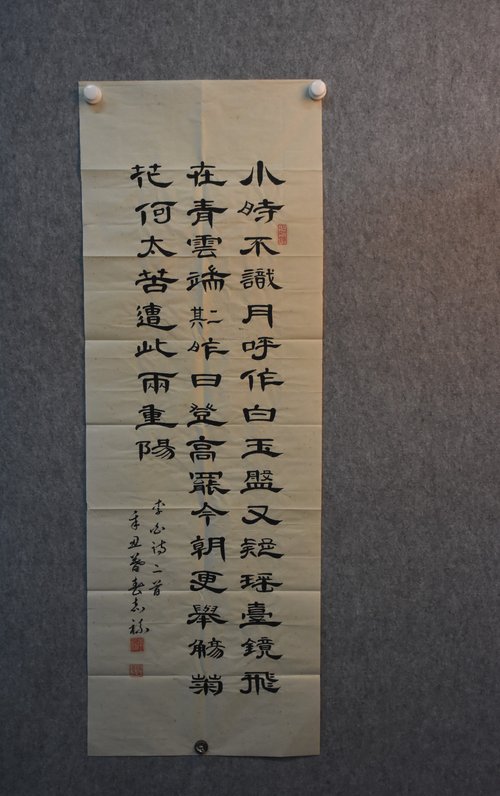 小時不識月呼作白玉盤又疑瑶臺鏡飛
在青雲端其二昨日登高罷今朝更舉觴菊
花何太苦遭此兩重陽
李白诗二首
辛丑暮春志